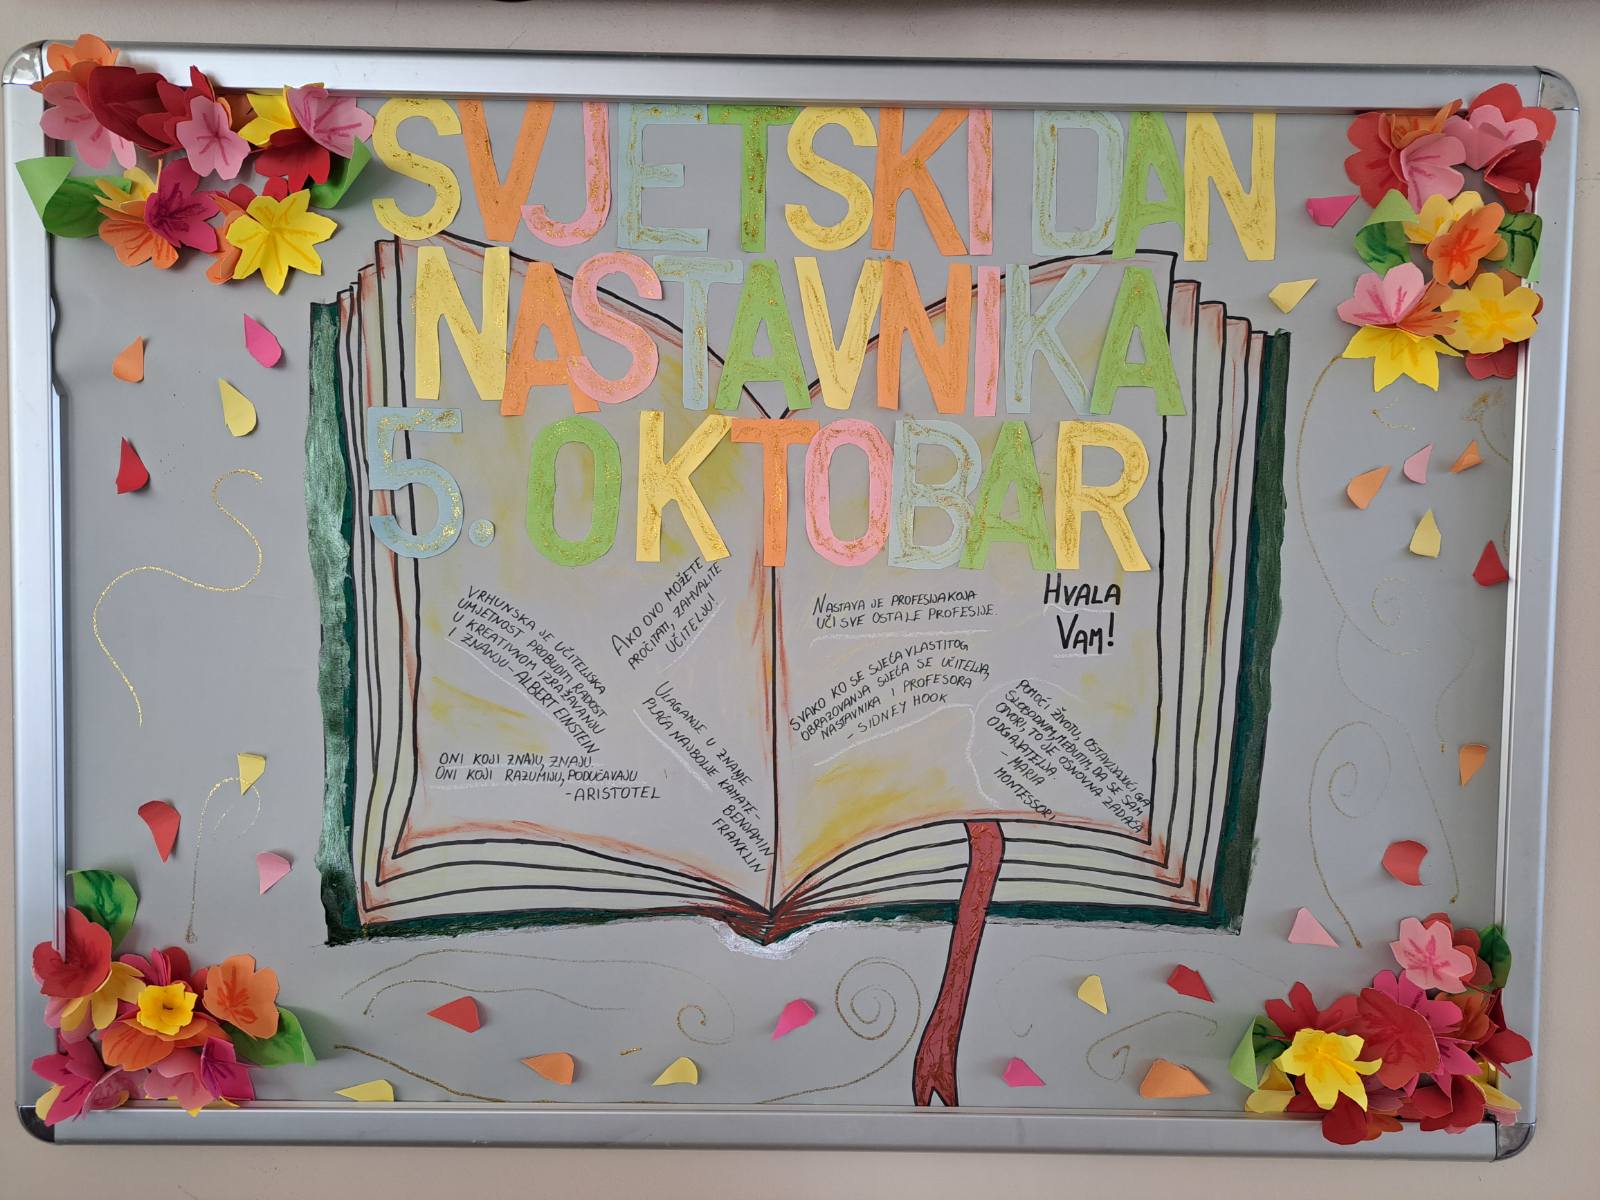 SVJETSKI DAN
NASTAVNIKA
5. OKTOBAR
VRHUNSKA JE UČITELJSKA
UMJETNOST PROBUDITI RADOST
U KREATIVNOM IZRAŽAVANJU
I ZNANJU - ALBERT EINSTEIN
AKO OVO MOŽETE
PROČITATI, ZAHVALITE
UČITELJU!
ONI KOJI ZNAJU, ZNAJU.
ONI KOJI RAZUMIJU, PODUČAVAJU
-ARISTOTEL
ULAGANJE U ZNANJE
PLAĆA NAJBOLJE KAMATE-
BENJAMIN
FRANKLIN
NASTAVA JE PROFESIJA KOJA
UČI SVE OSTALE PROFESIJE.
HVALA
VAM!
SVAKO KO SE SJEĆA VLASTITOG
OBRAZOVANJA SJEĆA SE UČITELJA,
NASTAVNIKA I PROFESORA
- SIDNEY HOOK
POMOĆI ŽIVOTU, OSTAVLJAJUĆI GA
SLOBODNIM, MEĐUTIM, DA SE SAM
OTVORI, TO JE OSNOVNA ZADAĆA
ODGAJATELJA.
- MARIA
MONTESSORI